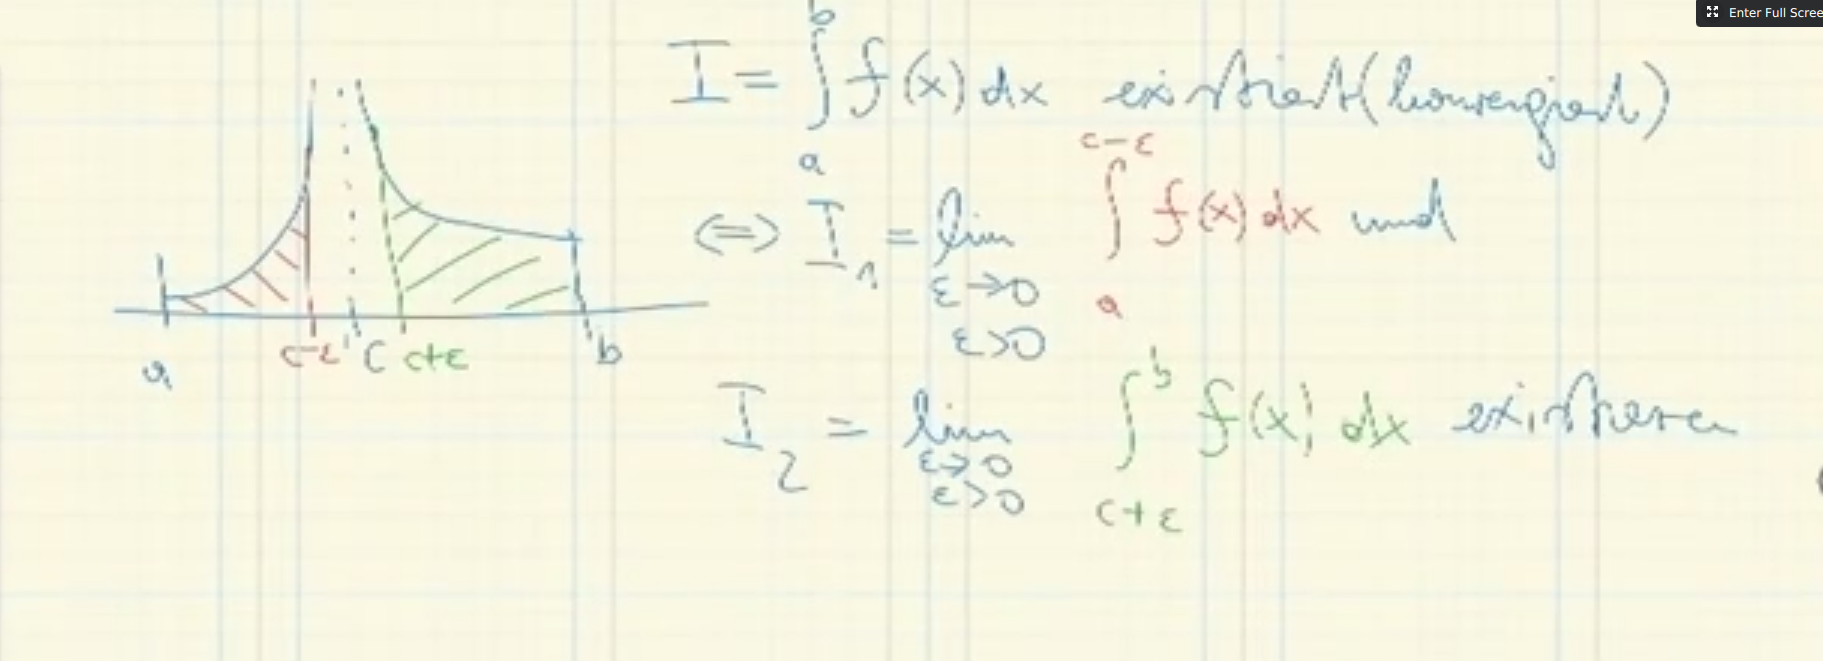 Enter Full Scree
I = ∫_a^b f(x) dx existiert (konvergiert)
⇔ I₁ = lim_{ε→0, ε>0} ∫_a^{c-ε} f(x) dx und
I₂ = lim_{ε→0, ε>0} ∫_{c+ε}^b f(x) dx existieren
a c-ε c c+ε b